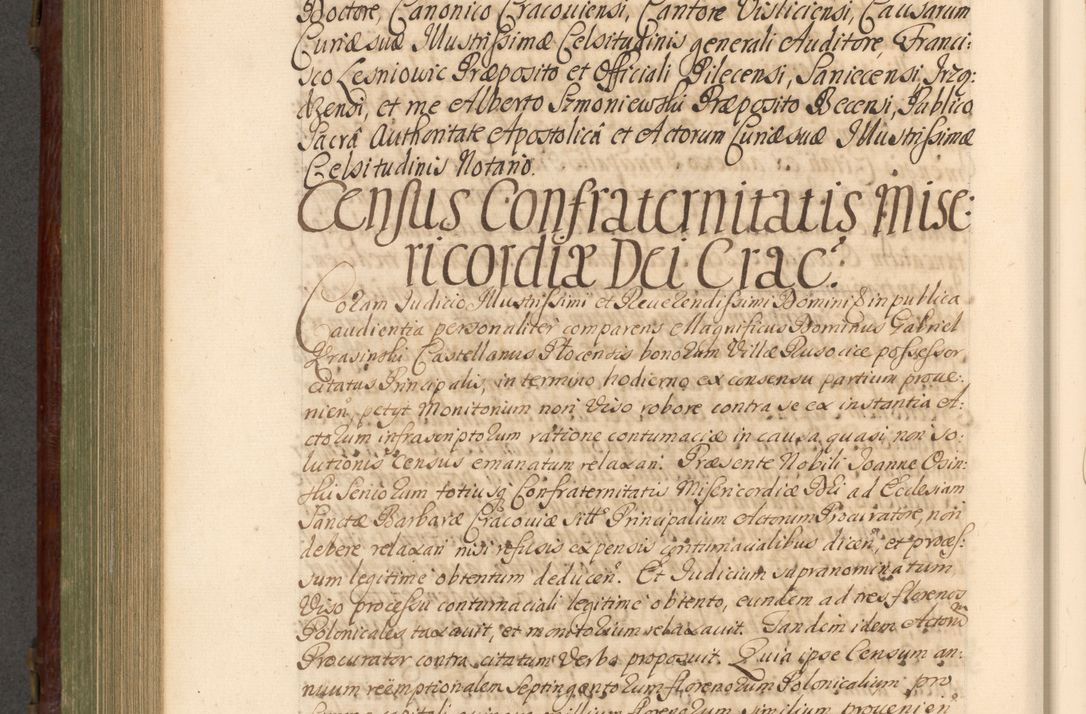 Doctore, Canonico Cracoviensi, Cantore Visliciensi, Causarum
Curiæ suæ Illustrissimæ Celsitudinis generali Auditore, Franci:
sco Lesniowic Præposito et Officiali Pilecensi, Saniecensi, Irzą:
dzensi, et me Alberto Szmoniewski Præposito Becensi, Publico
Sacrâ Authoritate Apostolicâ et Actorum Curiæ suæ Illustrissimæ
Celsitudinis Notario.
Census Confraternitatis Mise:
ricordiæ Dei Crac:
Coram Judicio Illustrissimi et Reverendissimi Domini in publica
audientia personaliter comparens Magnificus Dominus Gabriel
Krasinski Castellanus Plocensis bonorum Villæ Rusocice possessor
citatus Principalis, in termino hodierno ex consensu partium prove:
nien: petyt Monitorium non viso robore contra se ex instantia A:
ctorum infrascriptorum ratione contumaciæ in causa quasi non so:
lutionis Census emanatum relaxari. Præsente Nobili Joanne Osin:
ski Seniorum totiusq Confraternitatis Misericordiæ Dei ad Ecclesiam
Sanctæ Barbaræ Cracoviæ sitt: Principalium Actorum Procuratore, non
debere relaxari nisi refusis expensis contumacialibus dicen: et proces:
sum legitime obtentum deducen: Et Judicium supranominatum
viso processu contumaciali legitime obtento, eundem ad tres florenos
Polonicales taxavit, et monitorium relaxavit. Tandem idem Actorum
Procurator contra citatum Verbo proposuit. Quia ipse Censum an:
nuum reëmptionalem Septingentorum florenorum Polonicalium pro
florenorum similium provenien: